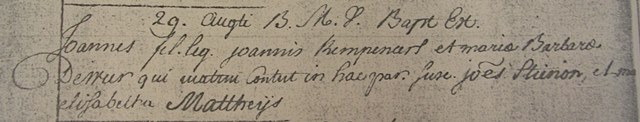 29. Augti B. M. V. Bapt Est.
Joannes fil. leg. joannis Kempeners et maria Barbara
qui matrim Contxt in hac par. Susc. joēs et
elisabetha Mattheijs